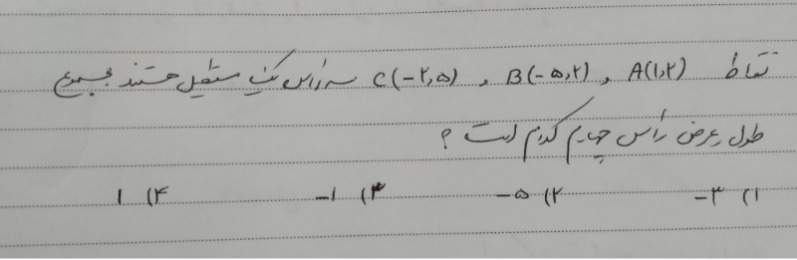 نقاط A(۱,۲) , B(-۵,۲) , C(-۲,۵) سه رأس یک مستطیل هستند مجموع
طول و عرض رأس چهارم کدام است ؟
۱) -۳ ۲) -۵ ۳) -۱ ۴) ۱